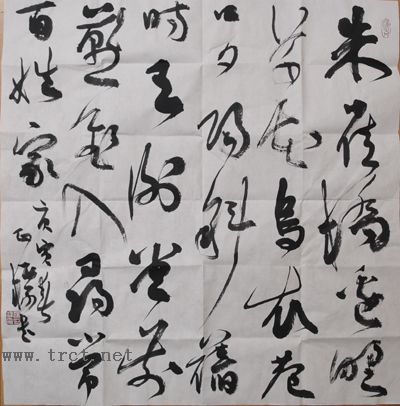 朱雀橋邊野
草花烏衣巷
口夕陽斜舊
時王謝堂前
燕飛入尋常
百姓家
庚寅春
www.trct.net